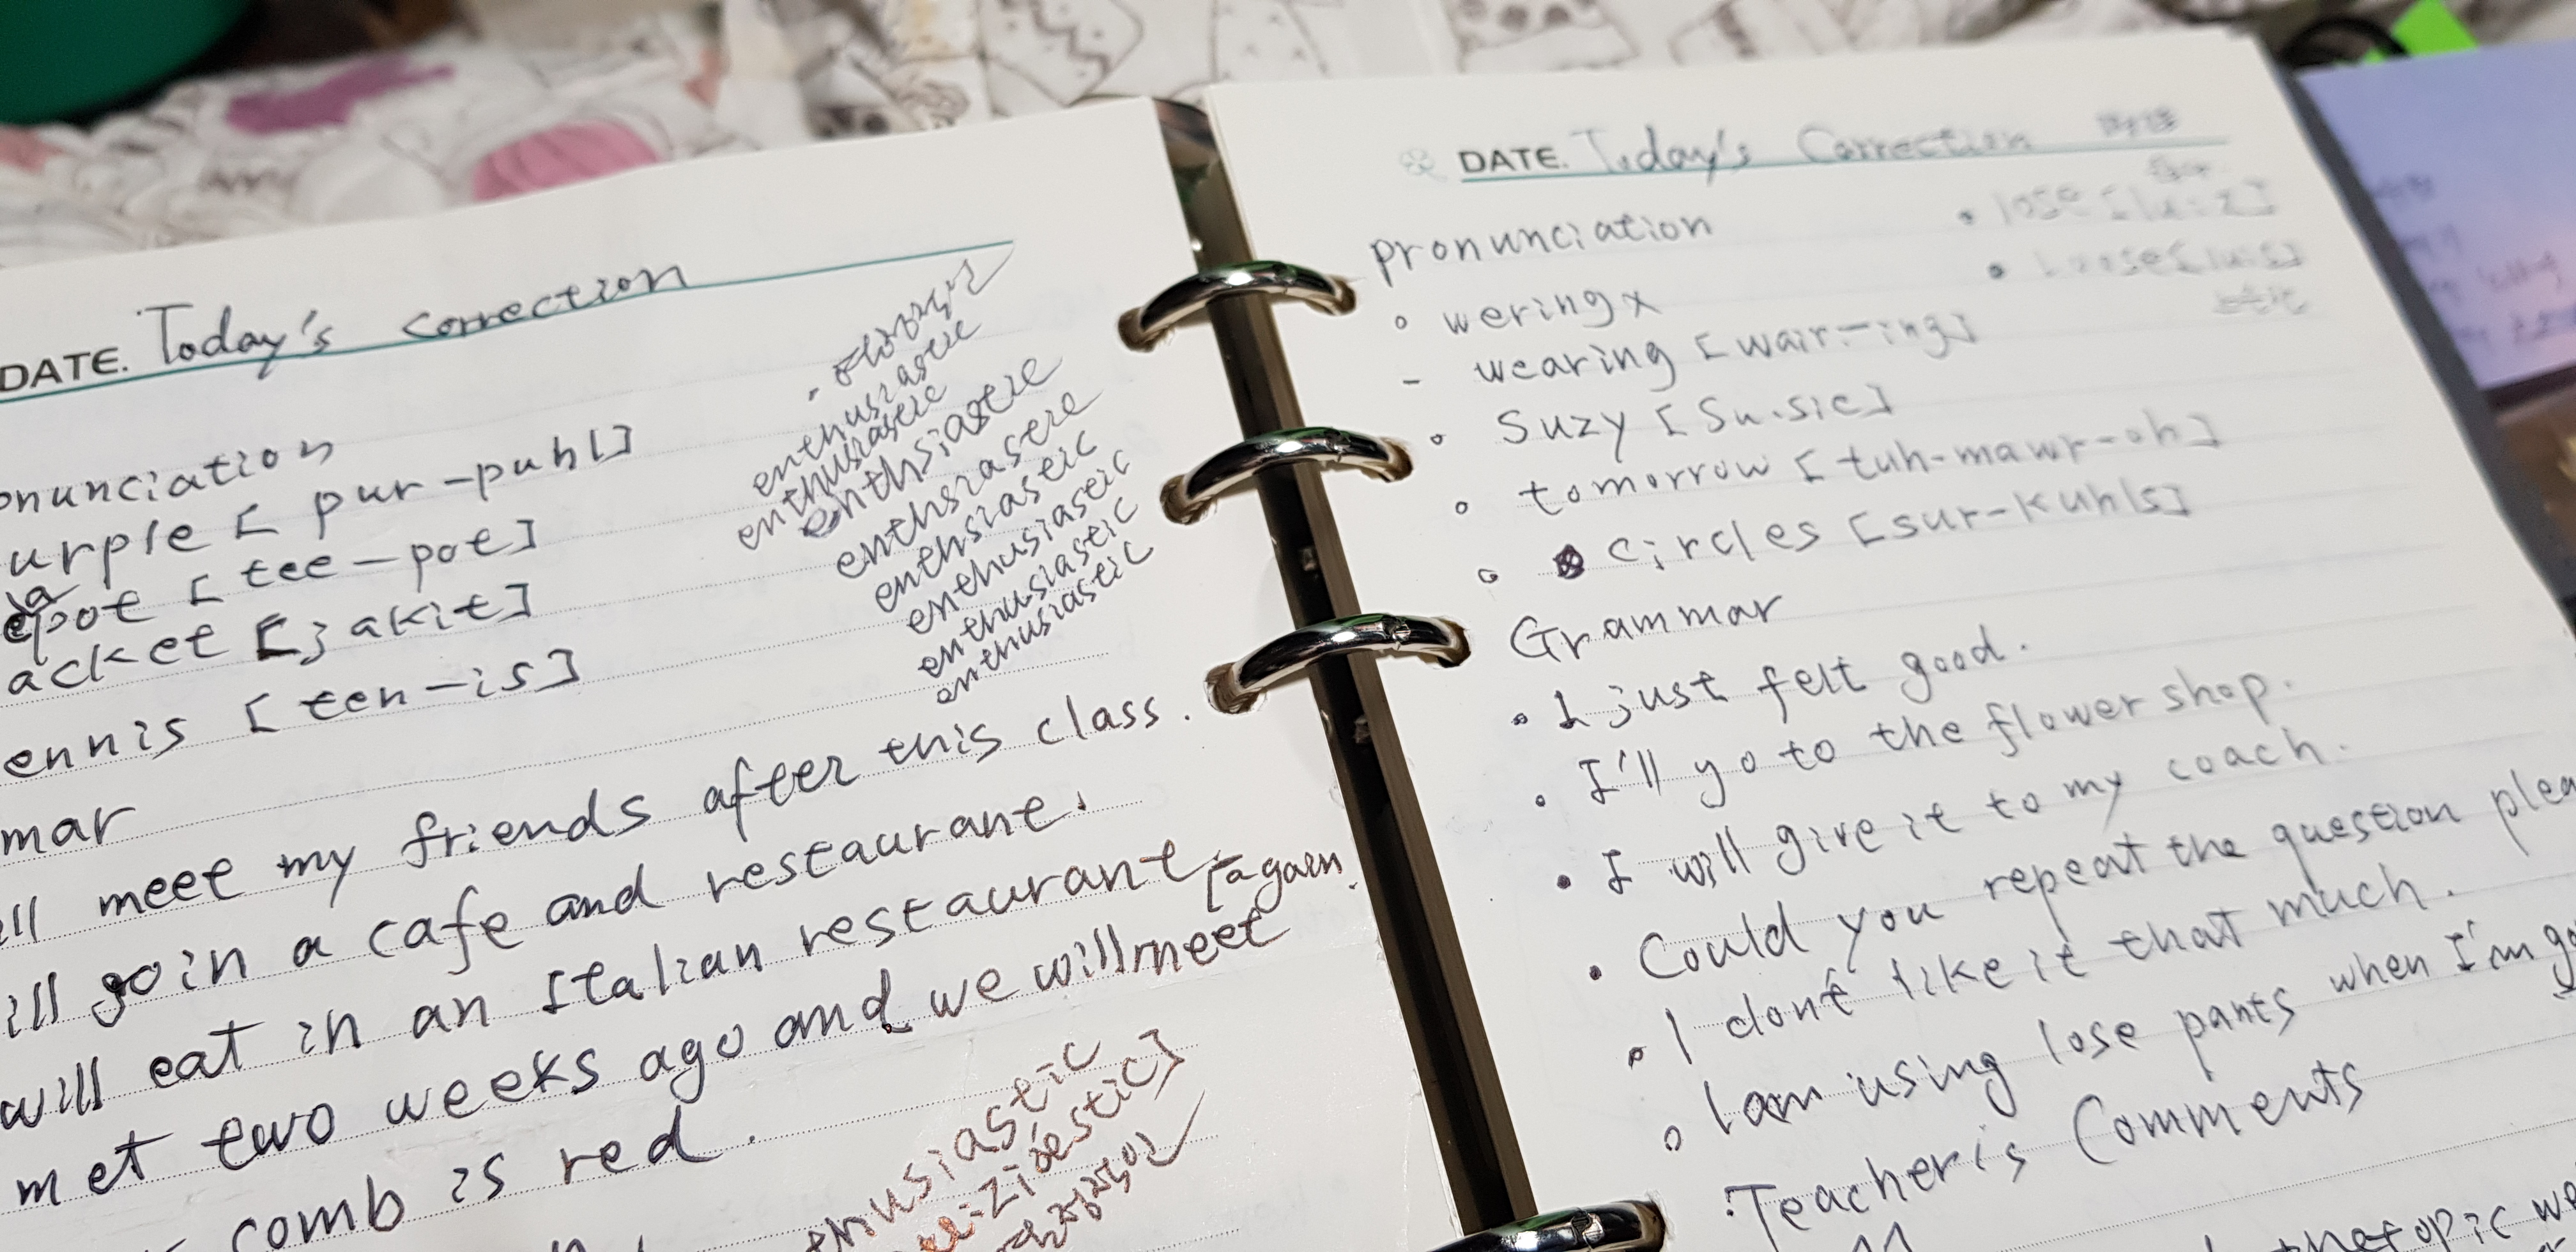 DATE. Today's correction
onunciation
urple [ pur-puhl]
epot [ tee-pot]
a
acket [jakit]
ennis [ten-is]
enthusiastic
enthusiastic
enthsiastic
enthsiastic
enthsiastic
enthusiastic
enthusiastic
enthusiastic
mar
ll meet my friends after this class.
ill go in a cafe and restaurant.
will eat in an Italian restaurant
met two weeks ago and we will meet again.
comb is red.
husiastic
DATE. Today's Correction
pronunciation
• lose [lu:z]
• Loose [lu:s]
◦ wering x
- wearing [wair-ing]
◦ Suzy [Su.sie]
◦ tomorrow [tuh-mawr-oh]
◦ circles [sur-kuhls]
Grammar
• I just felt good.
• I'll go to the flower shop.
• I will give it to my coach.
• Could you repeat the question plea
• I don't like it that much.
◦ I am using lose pants when I'm go
Teacher's Comments
the topic we